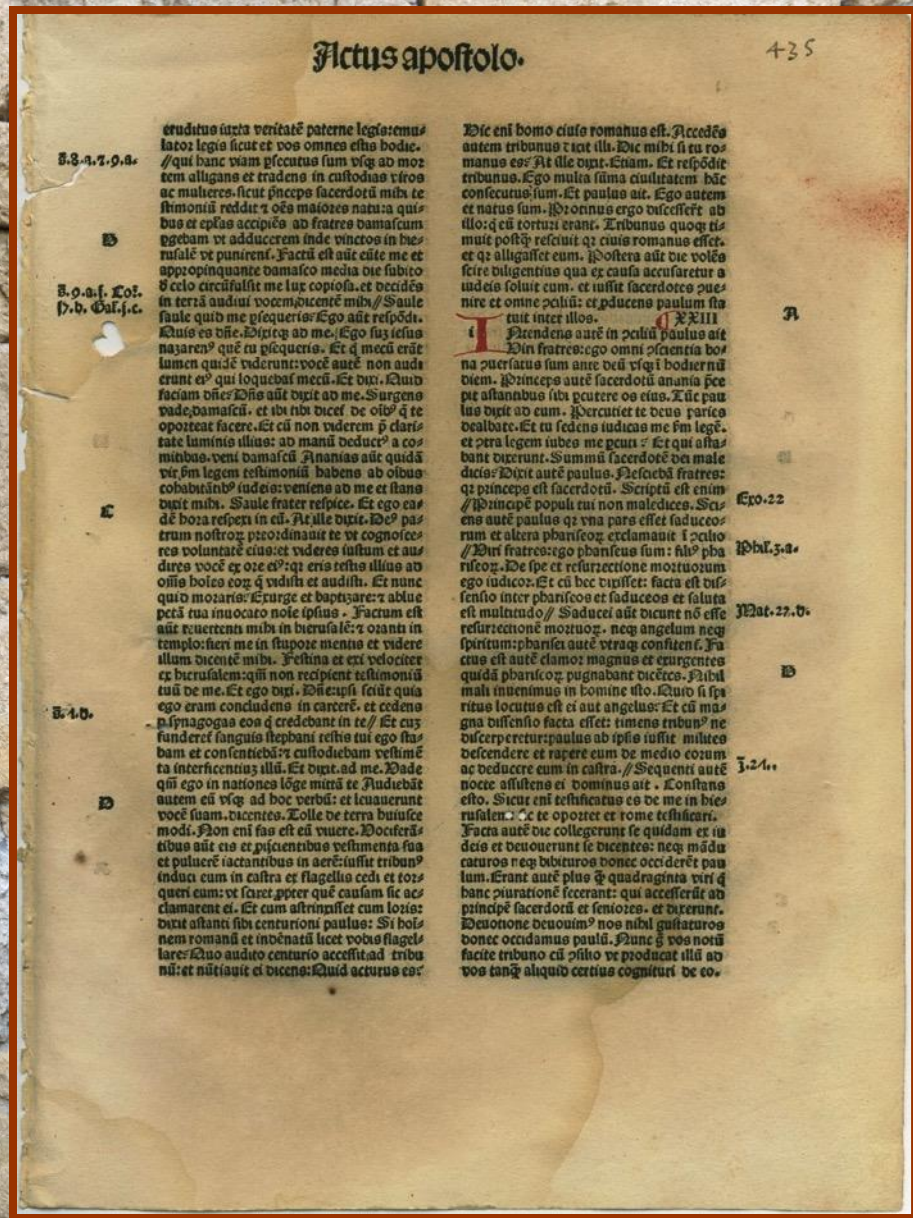 Actus apostolo.
435
eruditus iuxta veritatē paterne legis: emu⸗
lator legis sicut et vos omnes estis hodie.
//qui hanc viam ꝑsecutus sum vsqꝫ ad mor
tem alligans et tradens in custodias viros
ac mulieres. sicut pͥnceps sacerdotū mihi te
stimoniū reddit ⁊ oēs maiores natu: a qui⸗
bus et ep̄las accipiēs ad fratres damascum
ꝑgebam vt adducerem inde vinctos in hie⸗
rusalē vt punirent̃. Factū est aūt eūte me et
appropinquante damasco media die subito
ꝺ celo circūfulsit me lux copiosa. et decidēs
in terrā audiui vocem dicentē mihi// Saule
saule quid me ꝑsequeris? Ego aūt respōdi.
Quis es dn̄e. Dixitqꝫ ad me. Ego suꝫ iesus
nazarenꝰ quē tu ꝑsequeris. Et q̇ mecū erāt
lumen quidē viderunt: vocē autē non audi
erunt eiꝰ qui loquebat̃ mecū. Et dixi. Quid
faciam dn̄e? Dn̄s aūt dixit ad me. Surgens
vade damascū. et ibi tibi dicet̃ de oībꝰ q̄ te
oporteat facere. Et cū non viderem p̄ clari⸗
tate luminis illius: ad manū deductꝰ a co⸗
mitibus. veni damascū Ananias aūt quidā
vir ẜm legem testimoniū habens ab oībus
cohabitātibꝰ iudeis: veniens ad me et stans
dixit mihi. Saule frater respice. Et ego ea⸗
dē hora respexi in eū. At ille dixit. Deꝰ pa⸗
trum nostroꝝ preordinauit te vt cognosce⸗
res voluntatē eius: et videres iustum et au⸗
dires vocē ex ore eiꝰ: qꝛ eris testis illius ad
om̄s hoīes eoꝝ q̄ vidisti et audisti. Et nunc
quid moraris? Exurge et baptizare: ⁊ ablue
pctā tua inuocato noīe ipsius. Factum est
aūt reuertenti mihi in hierusalē: ⁊ oranti in
templo: fieri me in stupore mentis et videre
illum dicentē mihi. Festina et exi velociter
ex hierusalem: qm̄ non recipient testimoniū
tuū de me. Et ego dixi. Dn̄e: ipsi sciūt quia
ego eram concludens in carcerē. et cedens
ꝑ synagogas eos q̇ credebant in te// Et cuꝫ
funderet̃ sanguis stephani testis tui ego sta⸗
bam et consentiebā: ⁊ custodiebam vestimē
ta interficentiuꝫ illū. Et dixit ad me. Vade
qm̄ ego in nationes lōge mittā te Audiebāt
autem eū vsqꝫ ad hoc verbū: et leuauerunt
vocē suam. dicentes. Tolle de terra huiusce
modi. Non eni fas est eū viuere. Vociferā⸗
tibus aūt eis et ꝓijcientibus vestimenta sua
et puluerē iactantibus in aerē: iussit tribunꝰ
induci eum in castra et flagellis cedi et tor⸗
queri eum: vt sciret ꝓpter quē causam sic ac⸗
clamarent ei. Et cum astrinxisset eum loris:
dixit astanti sibi centurioni paulus: Si hoī⸗
nem romanū et indēnatū licet vobis flagel⸗
lare? Quo audito centurio accessit ad tribu
nū: et nūtiauit ei dicens: Quid acturus es?
Hic eni homo ciuis romanus est. Accedēs
autem tribunus dixit illi. Dic mihi si tu ro⸗
manus es? At ille dixit. Etiam. Et respōdit
tribunus. Ego multa sūma ciuilitatem hāc
consecutus sum. Et paulus ait. Ego autem
et natus sum. Protinus ergo discesserūt ab
illo: q̇ eū torturi erant. Tribunus quoqꝫ ti⸗
muit postꝙ̄ resciuit qꝛ ciuis romanus esset.
et qꝛ alligasset eum. Postera aūt die volēs
scire diligentius qua ex causa accusaretur a
iudeis soluit eum. et iussit sacerdotes ꝯue⸗
nire et omne ꝯciliū: et ꝓducens paulum sta
tuit inter illos. ¶XXIII
INtendens autē in ꝯciliū paulus ait
Viri fratres: ego omni ꝯscientia bo⸗
na ꝯuersatus sum ante deū vsqꝫ ī hodiernū
diem. Princeps autē sacerdotū anania p̄ce
pit astantibus sibi ꝑcutere os eius. Tūc pau
lus dixit ad eum. Percutiet te deus paries
dealbate. Et tu sedens iudicas me ẜm legē.
et ꝯtra legem iubes me ꝑcuti? Et qui asta⸗
bant dixerunt. Summū sacerdotē dei male
dicis? Dixit autē paulus. Nesciebā fratres:
qꝛ princeps est sacerdotū. Scriptū est enim
//Principē populi tui non maledices. Sci⸗
ens autē paulus qꝛ vna pars esset saduceo⸗
rum et altera phariseoꝝ exclamauit ī ꝯcilio
//Viri fratres: ego phariseus sum: filiꝰ pha
riseoꝝ. De spe et resurrectione mortuorum
ego iudicor. Et cū hec dixisset: facta est dis⸗
sensio inter phariseos et saduceos et saluta
est multitudo// Saducei aūt dicunt nō esse
resurrectionē mortuoꝝ. neqꝫ angelum neqꝫ
spiritum: pharisei autē vtraqꝫ confitent̃. Fa
ctus est autē clamor magnus et exurgentes
quidā phariseoꝝ pugnabant dicētes. Nihil
mali inuenimus in homine isto. Quid si spi
ritus locutus est ei aut angelus? Et cū ma⸗
gna dissensio facta esset: timens tribunꝰ ne
discerperetur: paulus ab ipsis iussit milites
descendere et rapere eum de medio eorum
ac deducere eum in castra. //Sequenti autē
nocte assistens ei dominus ait. Constans
esto. Sicut eni testificatus es de me in hie⸗
rusalem te oportet et rome testificari.
Facta autē die collegerunt se quidam ex iu
deis et deuouerunt se dicentes: neqꝫ mādu
caturos neqꝫ bibituros donec occiderēt pau
lum. Erant autē plus ꝙ̄ quadraginta viri q̇
hanc ꝯiurationē fecerant: qui accesserūt ad
principē sacerdotū et seniores. et dixerunt.
Deuotione deuouimꝰ nos nihil gustaturos
donec occidamus paulū. Nunc g̊ vos notū
facite tribuno cū ꝯsilio vt producat illū ad
vos tanꝙ̄ aliquid certius cognituri de eo.
B
C
D
A
Exo.22
Phil.3.a.
Mat.22.d.
B